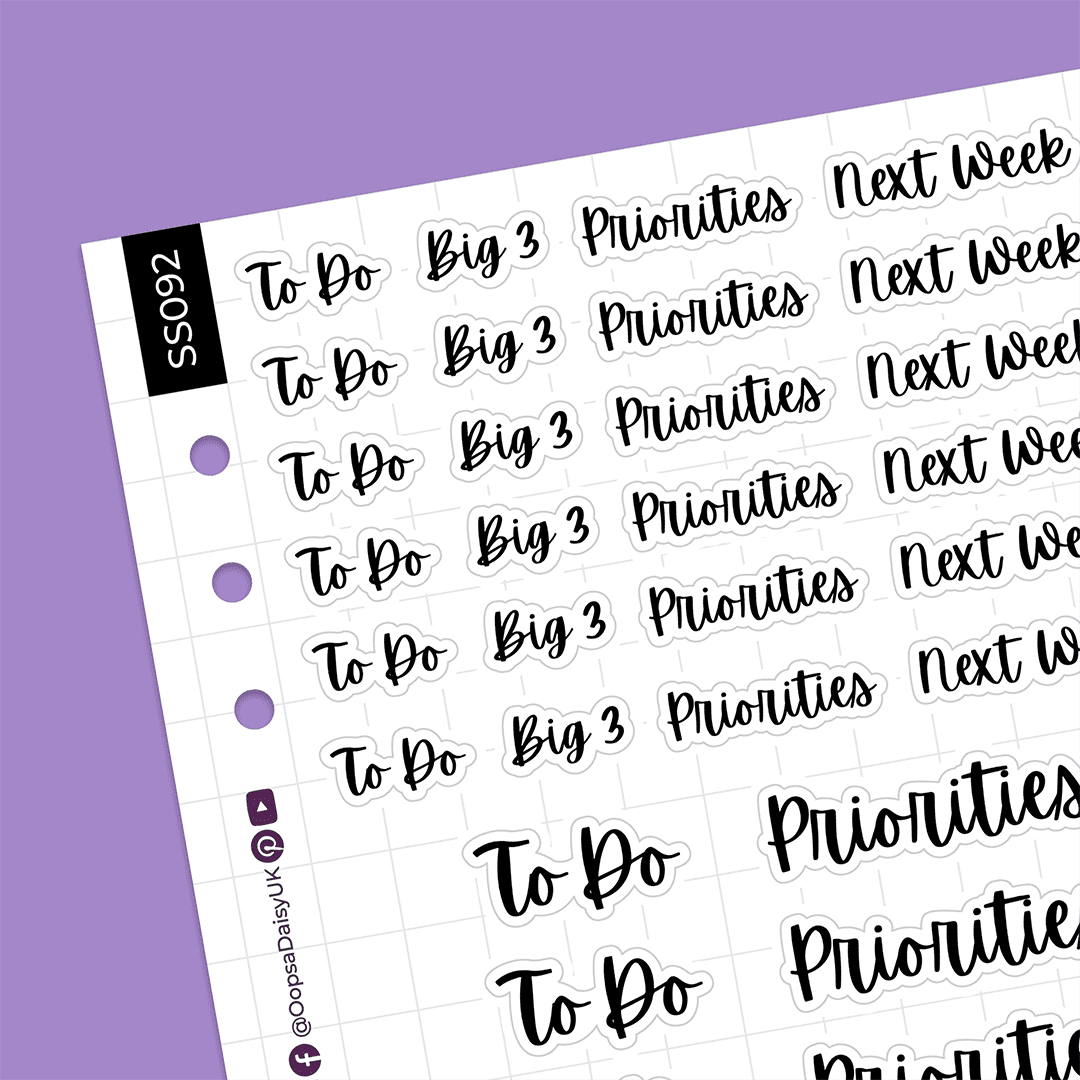 SS092
To Do Big 3 Priorities Next Week
To Do Big 3 Priorities Next Week
To Do Big 3 Priorities Next Week
To Do Big 3 Priorities Next We
To Do Big 3 Priorities Next We
To Do Big 3 Priorities Next W
To Do Priorities
To Do Priorities
Priorities
@OopsaDaisyUK